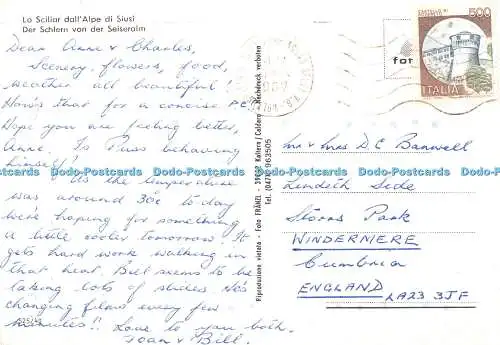 Lo Sciliar dall'Alpe di Siusi
Der Schlern von der Seiseralm
Dear Anne & Charles,
Scenery, flowers, food,
weather all beautiful!
How's that for a concise PC?
Hope you are feeling better,
Anne. Is Puss behaving
himself?
As the temperature
was around 30c to-day
we're hoping for something
a little cooler tomorrow. It
gets hard work walking in
that heat. Bill seems to be
taking lots of slides. He's
changing films every few
minutes!! Love to you both.
Joan & Bill.
Riproduzione vietata - Foto FRÄNZL - Kaltern / Caldaro - Nachdruck verboten
Tel. (0471) 963505
for
500
ITALIA
Mr & Mrs D C Banwell
Lindeth Side
Storrs Park
WINDERMERE
Cumbria
ENGLAND
LA23 3JF
Dodo-Postcards Dodo-Postcards Dodo-Postcards Dodo-Postcards